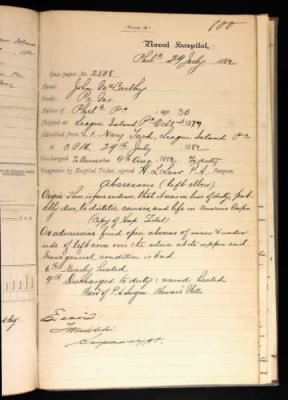 100
Naval Hospital,
Phila 29 July, 1882
Case paper No. 2508
Name: John McCarthy
Rank: Pr. Mar.
Native of Phila Pa age, 30
Shipped at League Island Pa Oct 1879
Admitted from U.S. Navy Yard, League Island Pa
3 P.M. 29th July, 1882
Discharged 9th Aug. 1882 To duty
Diagnosis by Hospital Ticket, signed H. L. Law P.A. Surgeon
Abscessus (left elbow)
Origin: There is evidence that it was in line of duty, prob-
ably due to dietetic causes and life in Marine Corps
(Copy of Hosp. Ticket)
On admission find open abscess of inner & under
side of left arm over the ulna at its upper end
man's general condition is bad.
6th Nearly healed
9th Discharged to duty: wound healed